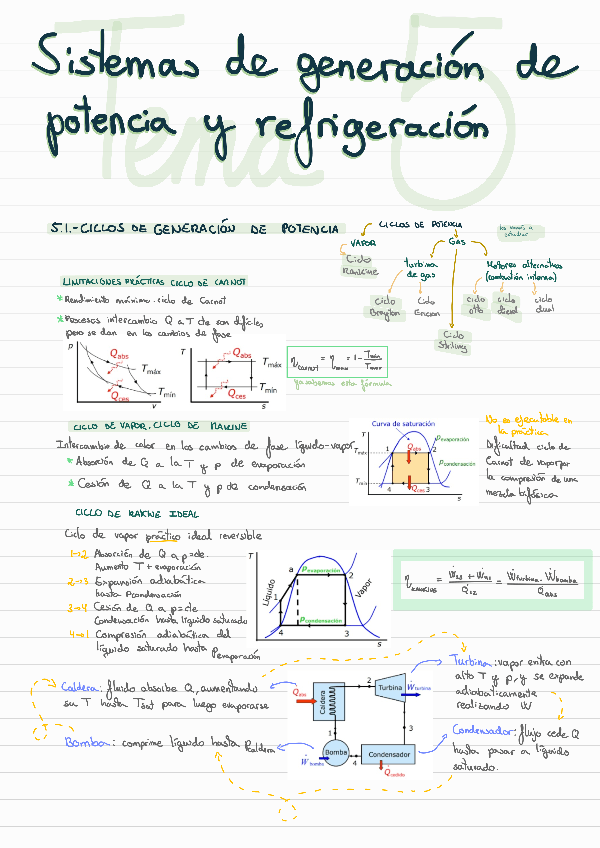 Tema 5
Sistemas de generación de
potencia y refrigeración
5.1.- CICLOS DE GENERACIÓN DE POTENCIA
CICLOS DE POTENCIA
VAPOR
GAS
Ciclo
Rankine
Turbina
de gas
Motores alternativos
(combustión interna)
Ciclo
Brayton
Ciclo
Ericson
Ciclo
otto
Ciclo
diesel
Ciclo
dual
Ciclo
Stirling
LIMITACIONES PRÁCTICAS CICLO DE CARNOT
* Rendimiento máximo: ciclo de Carnot
* Procesos intercambio Q a T cte son difíciles
pero se dan en los cambios de fase
p
Qabs
Tmáx
Tmín
Qces
v
T
Qabs
Tmáx
Tmín
Qces
s
ηcarnot = ηmax = 1 - Tmin/Tmax
ya sabemos esta fórmula
CICLO DE VAPOR. CICLO DE RANKINE
Intercambio de calor en los cambios de fase líquido-vapor
* Absorción de Q a la T y p de evaporación
* Cesión de Q a la T y p de condensación
Curva de saturación
T
Tmáx
Tmín
1
2
3
4
Qabs
Qces
pevaporación
pcondensación
s
No es ejecutable en
la práctica
Dificultad ciclo de
Carnot de vapor por
la compresión de una
mezcla bifásica
CICLO DE RANKINE IDEAL
Ciclo de vapor práctico ideal reversible
1→2 Absorción de Q a p=cte.
Aumento T + evaporación
2→3 Expansión adiabática
hasta Pcondensación
3→4 Cesión de Q a p=cte
Condensación hasta líquido saturado
4→1 Compresión adiabática del
líquido saturado hasta Pevaporación
T
Líquido
a
1
4
pevaporación
pcondensación
2
3
Vapor
s
Caldera: fluido absorbe Q, aumentando
su T hasta Tsat para luego evaporarse
Bomba: comprime líquido hasta Pcaldera
Qabs
Caldera
2
Turbina
Wturbina
1
3
Bomba
Wbomba
4
Condensador
Qcedido
Turbina: vapor entra con
alto T y p, y se expande
adiabáticamente
realizando W
Condensador: flujo cede Q
hasta pasar a líquido
saturado.